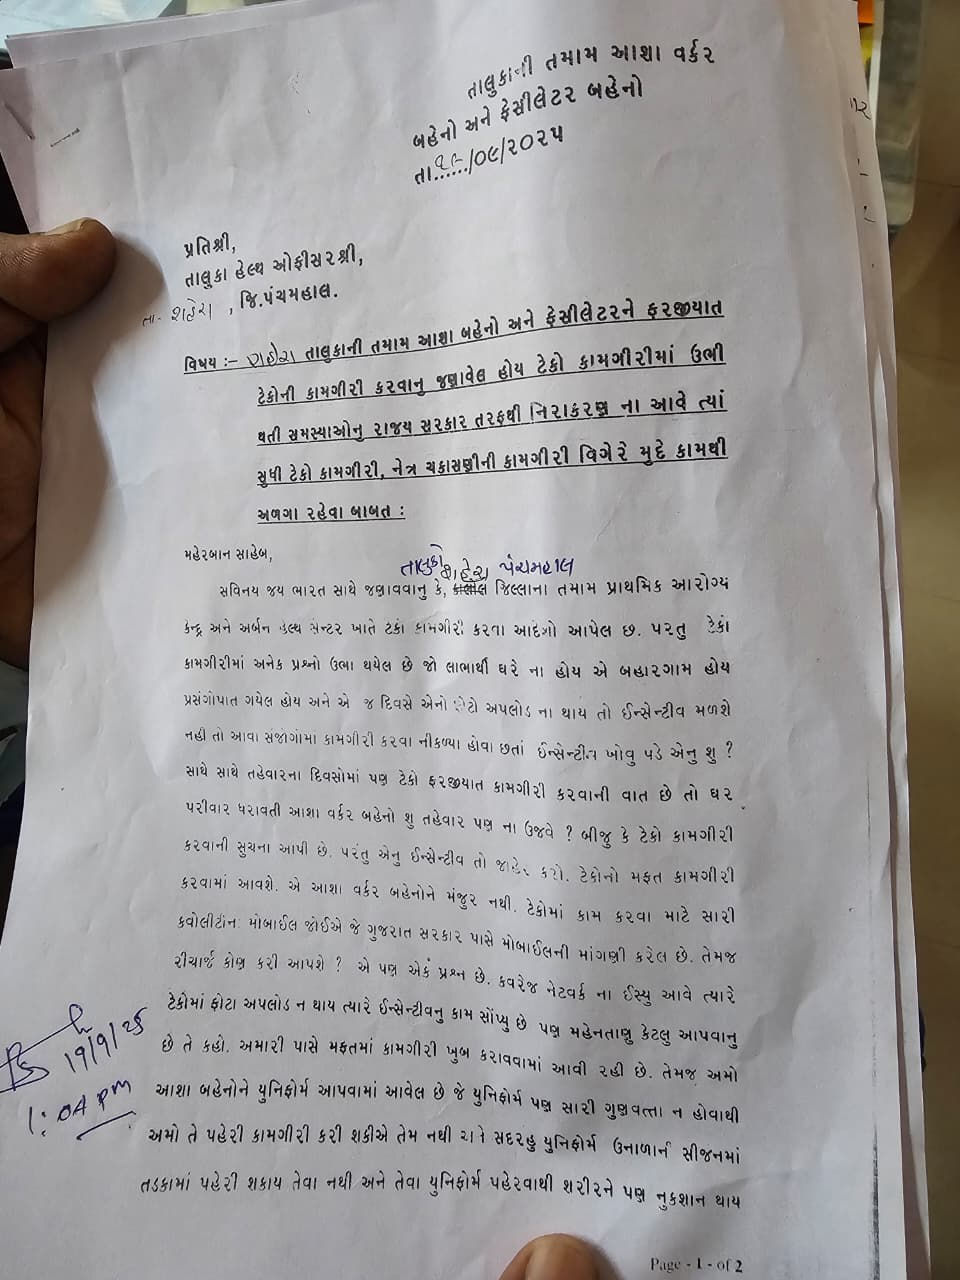 તાલુકાની તમામ આશા વર્કર
બહેનો અને ફેસીલેટર બહેનો
તા.૧૯/૦૯/૨૦૨૫
પ્રતિશ્રી,
તાલુકા હેલ્થ ઓફીસરશ્રી,
તા- શહેરા , જિ.પંચમહાલ.
વિષય :- શહેરા તાલુકાની તમામ આશા બહેનો અને ફેસીલેટરને ફરજીયાત
ટેકોની કામગીરી કરવાનુ જણાવેલ હોય ટેકો કામગીરીમાં ઉભી
થતી સમસ્યાઓનુ રાજય સરકાર તરફથી નિરાકરણ ના આવે ત્યાં
સુધી ટેકો કામગીરી, નેત્ર ચકાસણીની કામગીરી વિગેરે મુદે કામથી
અળગા રહેવા બાબત :
મહેરબાન સાહેબ,
તાલુકો શહેરા પંચમહાલ
સવિનય જય ભારત સાથે જણાવવાનુ કે, જિલ્લાના તમામ પ્રાથમિક આરોગ્ય
કેન્દ્ર અને અર્બન હેલ્થ સેન્ટર ખાતે ટેકો કામગીરી કરવા આદેશો આપેલ છે. પરંતુ ટેકો
કામગીરીમાં અનેક પ્રશ્નો ઉભા થયેલ છે જો લાભાર્થી ઘરે ના હોય એ બહારગામ હોય
પ્રસંગોપાત ગયેલ હોય અને એ જ દિવસે એનો ફોટો અપલોડ ના થાય તો ઈન્સેન્ટીવ મળશે
નહી તો આવા સજોગોમા કામગીરી કરવા નીકળ્યા હોવા છતાં ઈન્સેન્ટીવ ખોવુ પડે એનુ શુ ?
સાથે સાથે તહેવારના દિવસોમાં પણ ટેકો ફરજીયાત કામગીરી કરવાની વાત છે તો ઘર
પરીવાર ધરાવતી આશા વર્કર બહેનો શુ તહેવાર પણ ના ઉજવે ? બીજુ કે ટેકો કામગીરી
કરવાની સુચના આપી છે. પરંતુ એનુ ઈન્સેન્ટીવ તો જાહેર કરો. ટેકોનો મફત કામગીરી
કરવામાં આવશે. એ આશા વર્કર બહેનોને મંજુર નથી. ટેકોમાં કામ કરવા માટે સારી
કવોલીટીના મોબાઈલ જોઈએ જે ગુજરાત સરકાર પાસે મોબાઈલની માંગણી કરેલ છે. તેમજ
રીચાર્જ કોણ કરી આપશે ? એ પણ એક પ્રશ્ન છે. કવરેજ નેટવર્ક ના ઈસ્યુ આવે ત્યારે
ટેકોમાં ફોટા અપલોડ ન થાય ત્યારે ઈન્સેન્ટીવનુ કામ સોંપ્યુ છે પણ મહેનતાણુ કેટલુ આપવાનુ
છે તે કહો. અમારી પાસે મફતમાં કામગીરી ખુબ કરાવવામાં આવી રહી છે. તેમજ અમો
આશા બહેનોને યુનિફોર્મ આપવામાં આવેલ છે જે યુનિફોર્મ પણ સારી ગુણવત્તા ન હોવાથી
અમો તે પહેરી કામગીરી કરી શકીએ તેમ નથી અને સદરહુ યુનિફોર્મ ઉનાળાની સીજનમાં
તડકામાં પહેરી શકાય તેવા નથી અને તેવા યુનિફોર્મ પહેરવાથી શરીરને પણ નુકશાન થાય
19/9/25
1:04 pm
Page - 1 - of 2